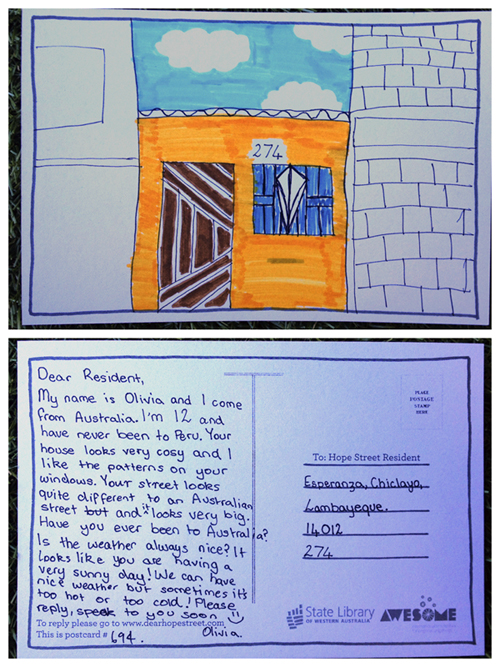 274
Dear Resident,
My name is Olivia and I come
from Australia. I'm 12 and
have never been to Peru. Your
house looks very cosy and I
like the patterns on your
windows. Your street looks
quite different to an Australian
street but and it looks very big.
Have you ever been to Australia?
Is the weather always nice? It
looks like you are having a
very sunny day! We can have
nice weather but sometimes its
too hot or too cold! Please
reply, speak to you soon
Olivia.
To reply please go to www.dearhopestreet.com
This is postcard # 694.
PLACE
POSTAGE
STAMP
HERE
To: Hope Street Resident
Esperanza, Chiclayo,
Lambayeque.
14012
274
State Library
OF WESTERN AUSTRALIA
AWESOME